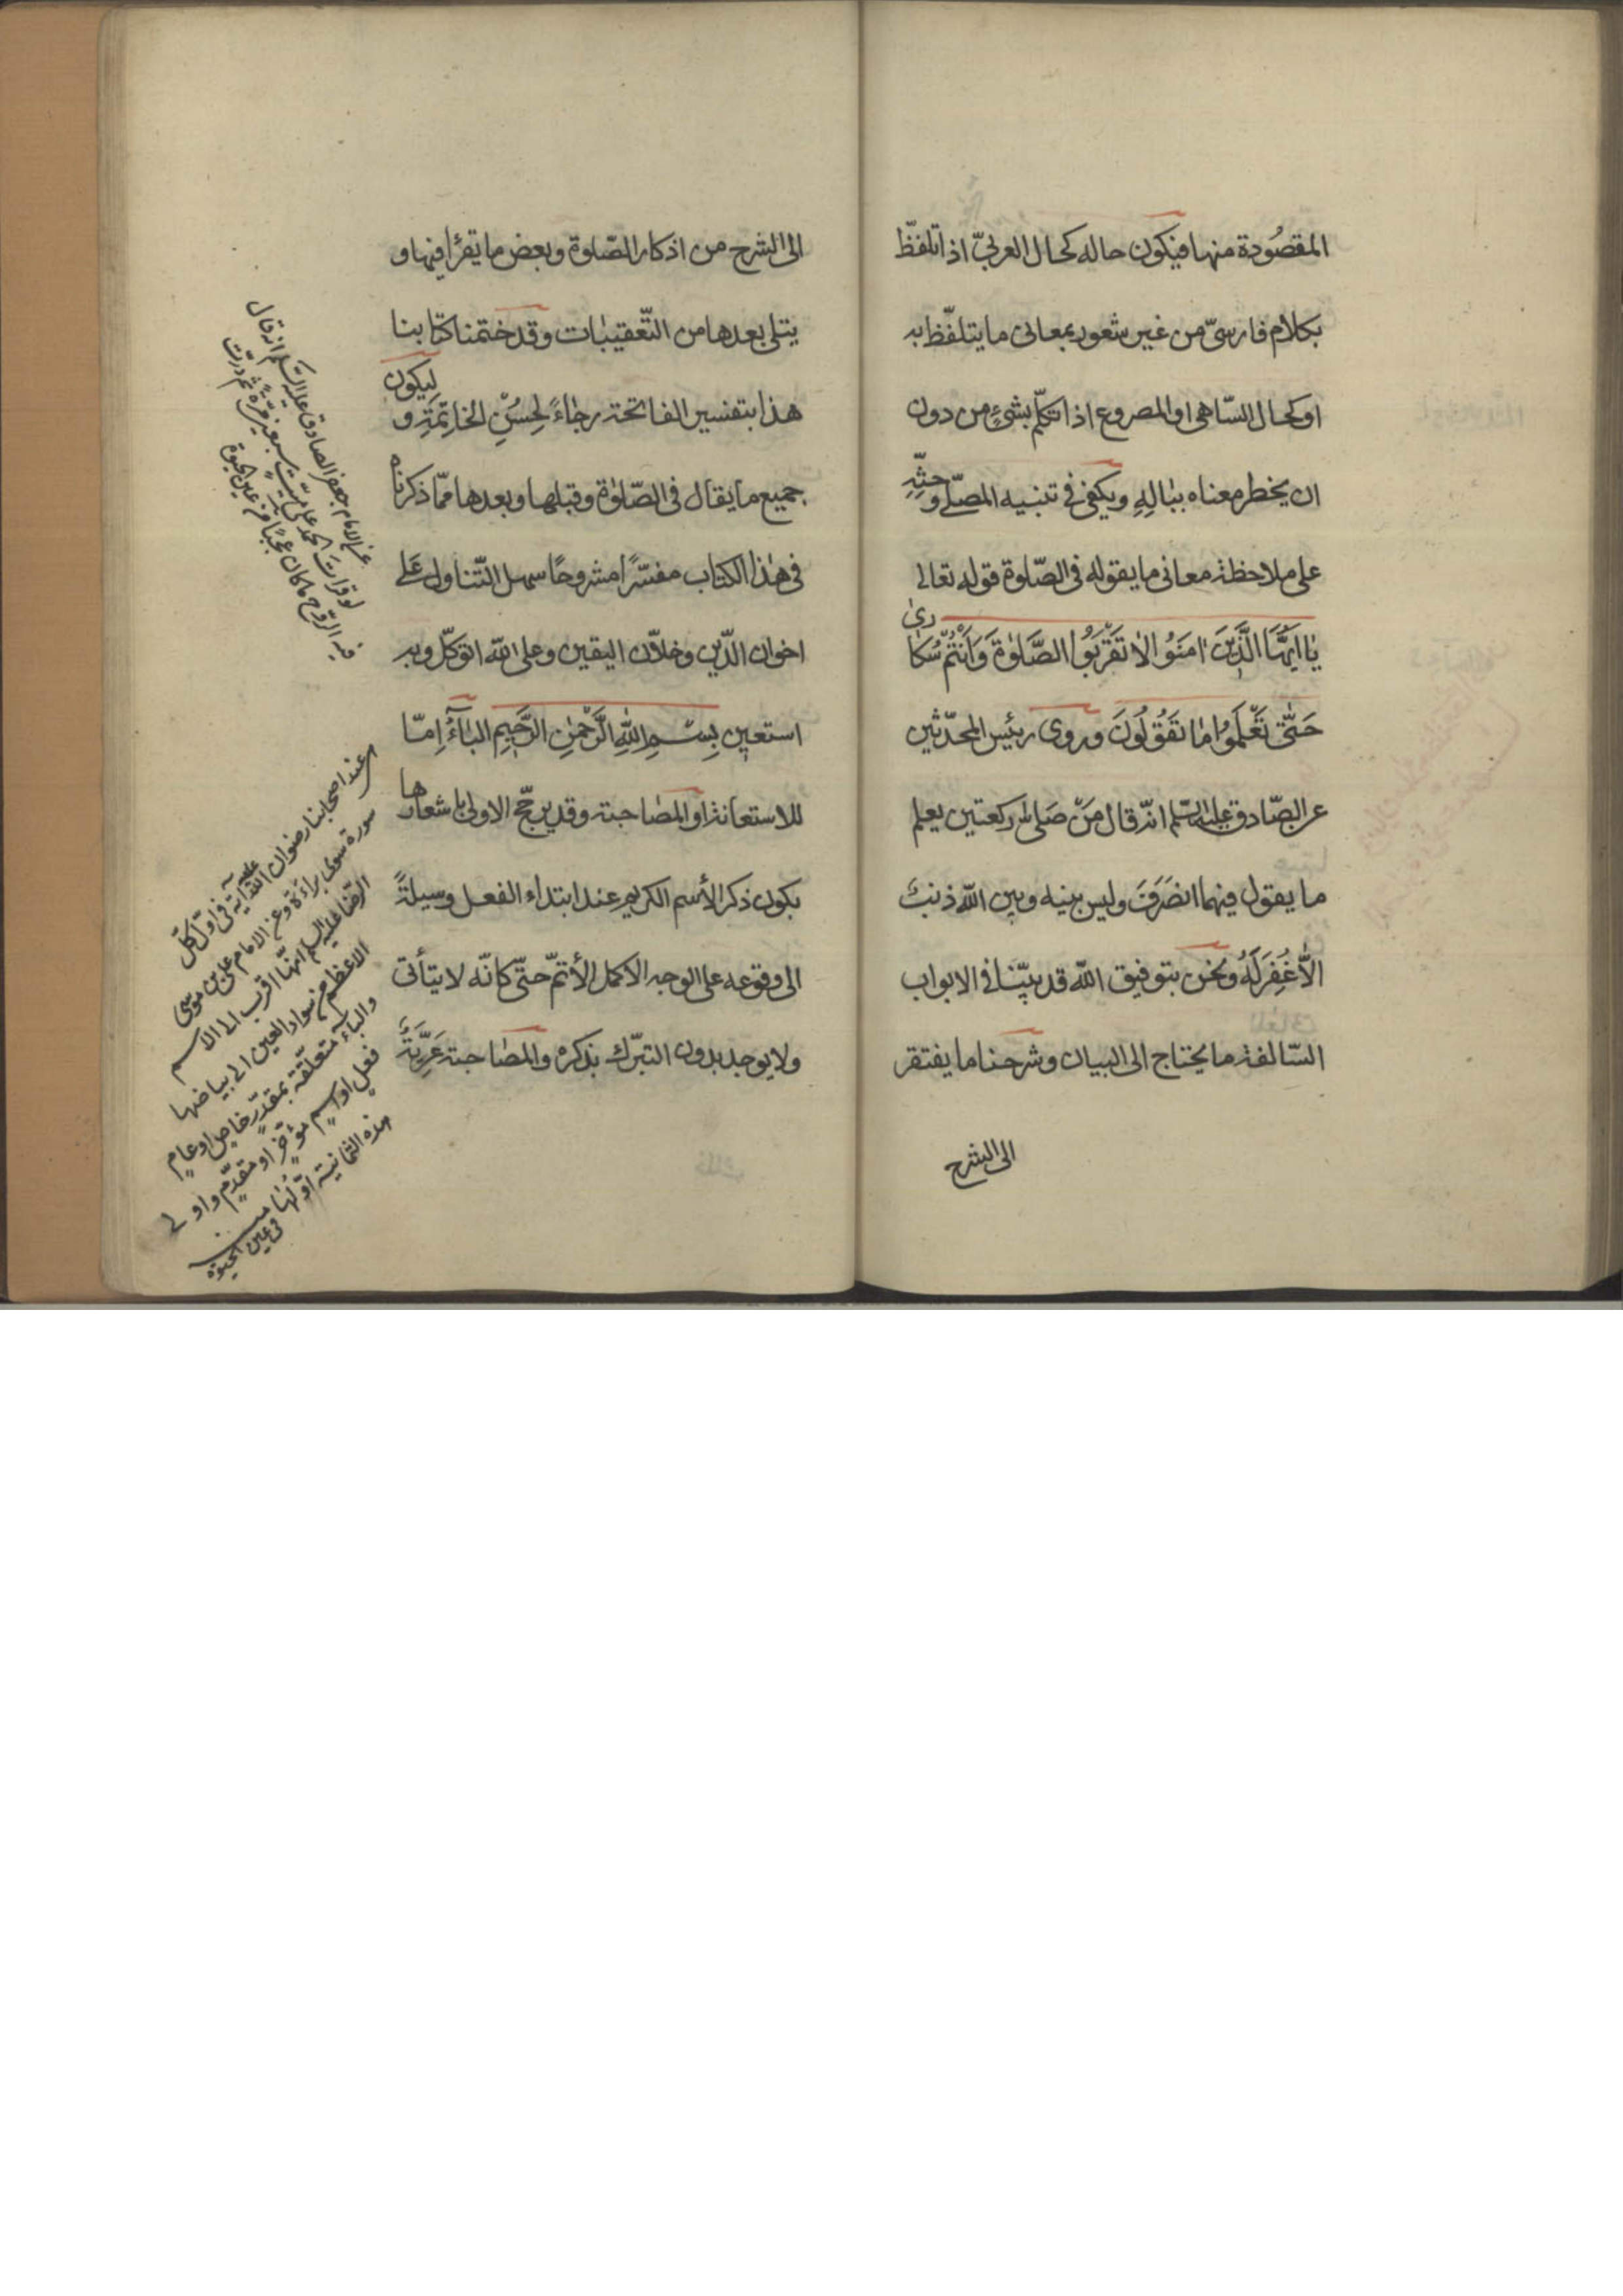 المقصُودة منها فيكون حاله كحال العربىّ اذا تلفّظ
بكلام فارسىّ من غير شعور بمعانى ما يتلفّظ به
او كحال السّاهى او المصروع اذا تكلّم بشئٍ من دون
ان يخطر معناه ببٰالِهِ ويكفى فى تنبيه المصلّى وحثّهِ
على ملاحظة معانى ما يقوله فى الصّلوة قوله تعالى
يٰا اَيُّهَا الَّذِينَ اٰمَنُوا لاٰ تَقْرَبُوا الصَّلوٰةَ وَاَنْتُمْ سُكٰارىٰ
حَتّٰى تَعْلَمُوا مٰا تَقُولُونَ وروى رئيس المحدّثين
عن الصّادق عليه السّلم انّه قال مَنْ صَلى ركعتين يعلم
ما يقول فيهما انصَرَفَ وليس بينه وبين اللّه ذنب
الاّ غُفِرَ لَهُ ونحن بتوفيق اللّه قد بيّنّا فى الابواب
السّالفة ما يحتاج الى البيان وشرحنا ما يفتقر
الى الشرح
الى الشرح من اذكار الصّلوة وبعض ما يقرأ فيها و
يتلى بعدها من التّعقيبٰات وقد ختمنا كتٰابنا
هذا بتفسير الفاتحة رجٰاءً لِحُسْنِ الخاتِمَةِ و ليكون
جميع ما يقال فى الصّلوٰة وقبلها وبعدها ممّا ذكرناه
فى هٰذا الكتٰاب مفسّرًا مشروحًا سهل التّناول عَلى
اخوان الدّين وخلاّن اليقين وعلى اللّه اتوكّل وبه
استعين بِسْــمِ اللّٰهِ الرَّحْمٰنِ الرَّحِيمِ البٰآءُ اِمّا
للاستعانة او المصٰاحبة وقد يرجّح الاولى باشعارها
بكون ذكر الأسم الكريم عند ابتداء الفعل وسيلةً
الى وقوعه على الوجه الاكمل الأتمّ حتّى كانّه لا يتأتى
ولا يوجد بدون التبرّك بذكره والمصٰاحبة عَرِيَّةٌ
عن الامام جعفر الصادق عليه السلم انه قال
لو قرات الحمد على ميّت سبعين مرّة ثم ردّت
فيه الروح ما كان عجبًا من عين الحيوة
عند اصحابنا رضوان اللّه عليهم آية فى اوّل كلّ
سورة سوى براءة وعن الامام على بن موسى
الرّضا عليه السلم انها اقرب الى الاسم
الاعظم من سواد العين الى بياضها
والباء متعلّقة بمقدّر خاص او عام
فعل او اسم مؤخّر او مقدّم واولى
هذه الثمانية اوّلها
فى عين الحيوة